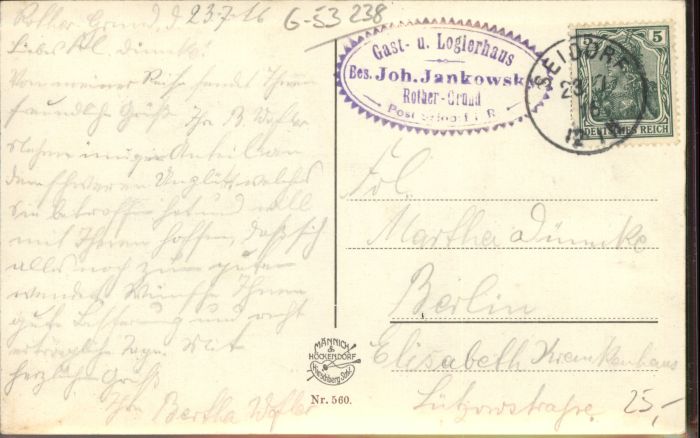 Rother-Grund, d. 23.7.16
G-53 238
Liebes Frl. Dümke!
Von meiner Reise sendet Ihnen
freundliche Grüße Ihr B. Wolter
Nehme innigen Anteil an
dem schweren Unglück welches
Sie betroffen hat und will
mit Ihnen hoffen, daß sich
alles noch zum guten
wendet. Wünsche Ihnen
gute Besserung und recht
erträgliche Tage. Mit
herzlichem Gruß
Ihre Bertha Wolter
Gast- u. Logierhaus
Bes. Joh. Jankowski
Rother-Grund
Post i. R.
SEIDORF
23 7
12
5
DEUTSCHES REICH
Frl.
Martha Dümke
Berlin
Elisabeth Krankenhaus
Lützowstrahse 25,-
MÄNNICH
&
HÖCKENDORF
Hirschberg Schl.
Nr. 560.